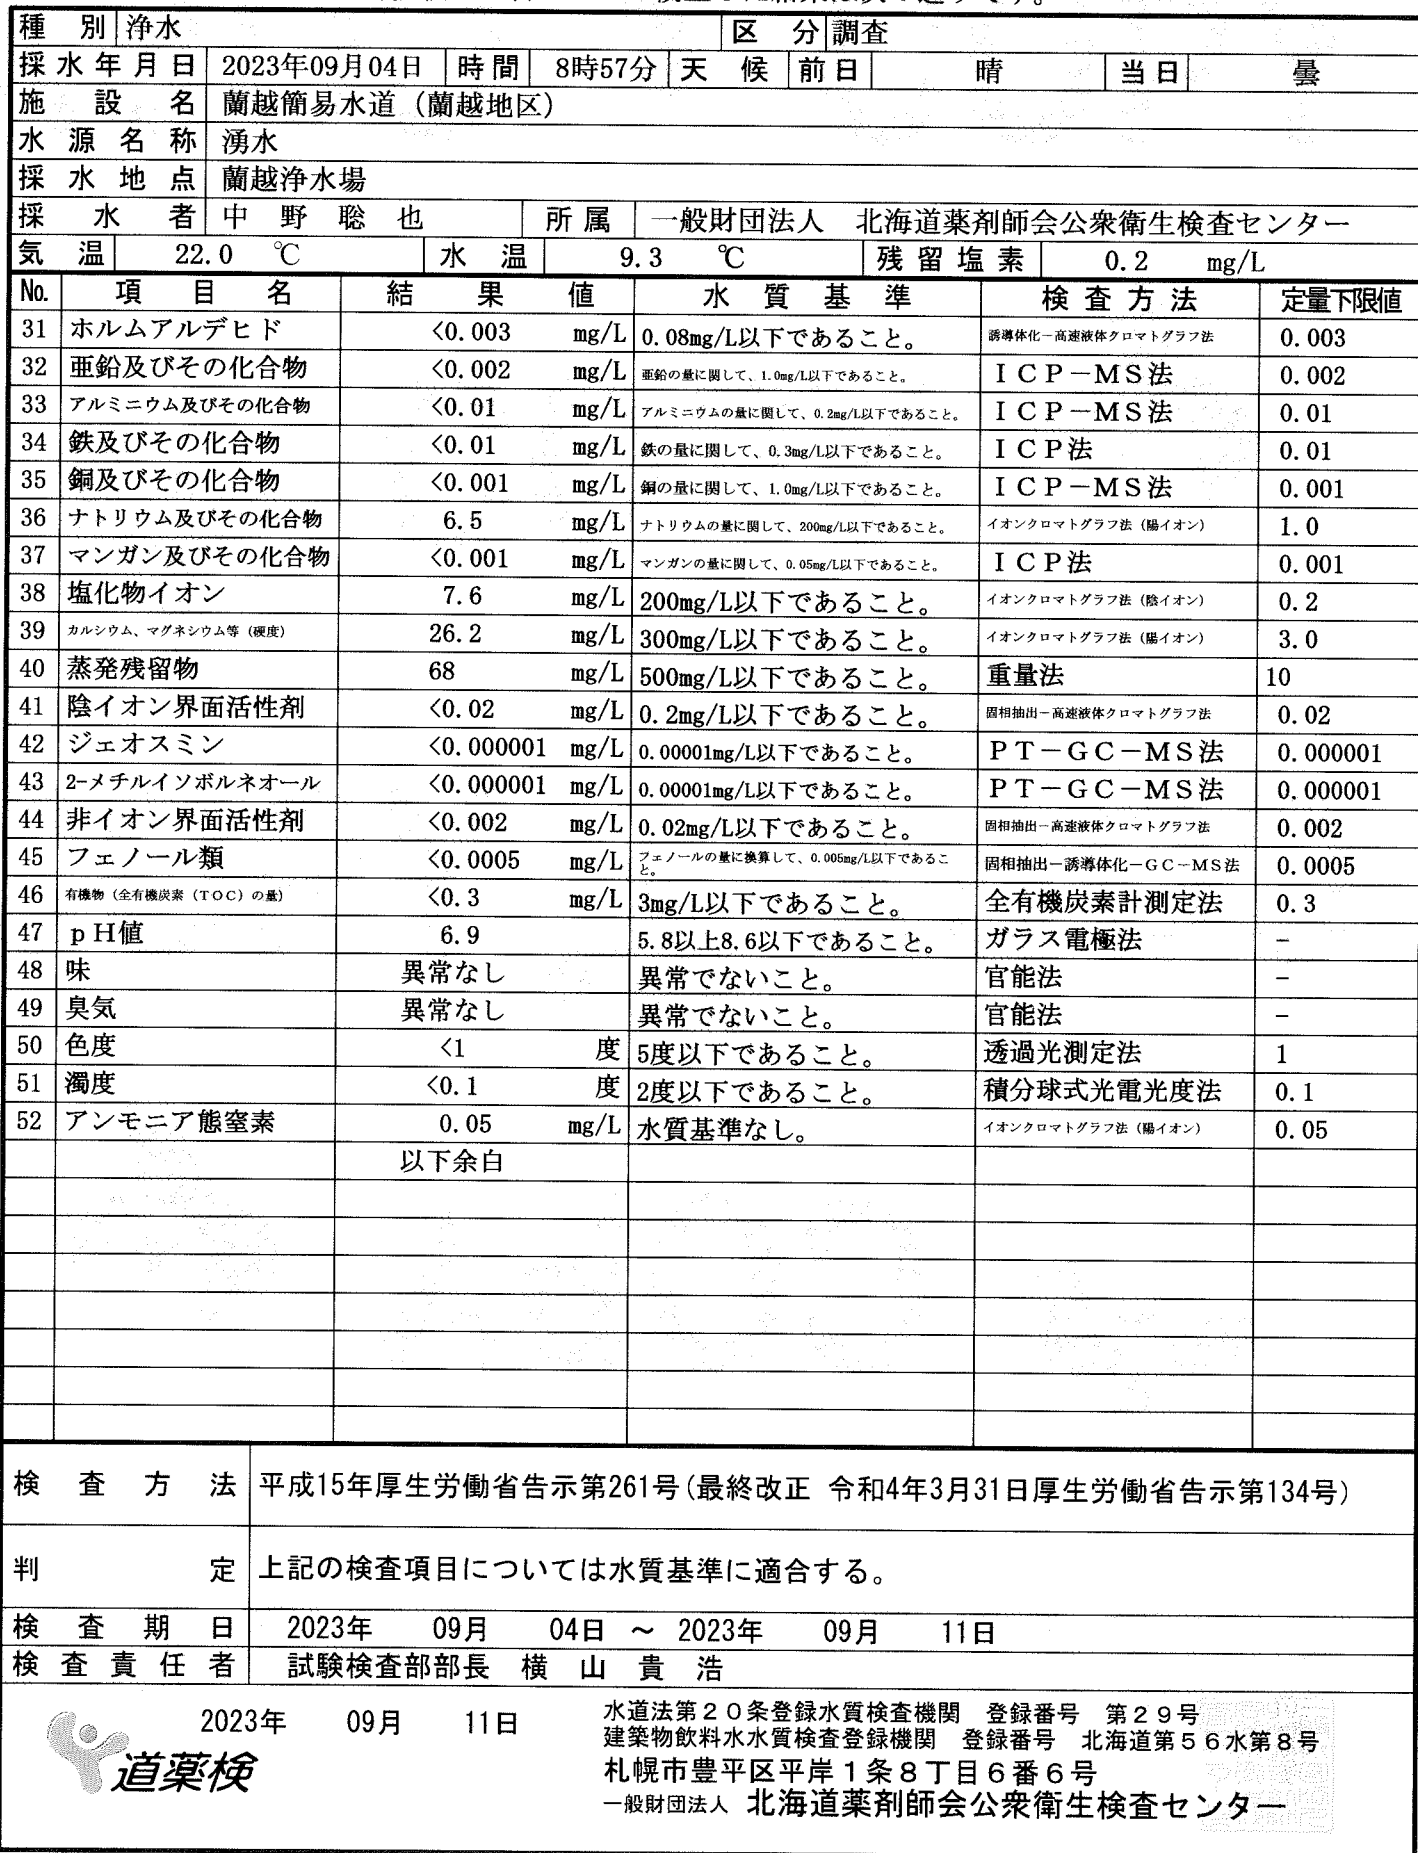 種別 浄水 区分 調査
採水年月日 2023年09月04日 時間 8時57分 天候 前日 晴 当日 曇
施設名 蘭越簡易水道（蘭越地区）
水源名称 湧水
採水地点 蘭越浄水場
採水者 中野聡也 所属 一般財団法人 北海道薬剤師会公衆衛生検査センター
気温 22.0 ℃ 水温 9.3 ℃ 残留塩素 0.2 mg/L
No. 項目名 結果値 水質基準 検査方法 定量下限値
31 ホルムアルデヒド <0.003 mg/L 0.08mg/L以下であること。 誘導体化－高速液体クロマトグラフ法 0.003
32 亜鉛及びその化合物 <0.002 mg/L 亜鉛の量に関して、1.0mg/L以下であること。 ＩＣＰ－ＭＳ法 0.002
33 アルミニウム及びその化合物 <0.01 mg/L アルミニウムの量に関して、0.2mg/L以下であること。 ＩＣＰ－ＭＳ法 0.01
34 鉄及びその化合物 <0.01 mg/L 鉄の量に関して、0.3mg/L以下であること。 ＩＣＰ法 0.01
35 銅及びその化合物 <0.001 mg/L 銅の量に関して、1.0mg/L以下であること。 ＩＣＰ－ＭＳ法 0.001
36 ナトリウム及びその化合物 6.5 mg/L ナトリウムの量に関して、200mg/L以下であること。 イオンクロマトグラフ法（陽イオン） 1.0
37 マンガン及びその化合物 <0.001 mg/L マンガンの量に関して、0.05mg/L以下であること。 ＩＣＰ法 0.001
38 塩化物イオン 7.6 mg/L 200mg/L以下であること。 イオンクロマトグラフ法（陰イオン） 0.2
39 カルシウム、マグネシウム等（硬度） 26.2 mg/L 300mg/L以下であること。 イオンクロマトグラフ法（陽イオン） 3.0
40 蒸発残留物 68 mg/L 500mg/L以下であること。 重量法 10
41 陰イオン界面活性剤 <0.02 mg/L 0.2mg/L以下であること。 固相抽出－高速液体クロマトグラフ法 0.02
42 ジェオスミン <0.000001 mg/L 0.00001mg/L以下であること。 ＰＴ－ＧＣ－ＭＳ法 0.000001
43 2-メチルイソボルネオール <0.000001 mg/L 0.00001mg/L以下であること。 ＰＴ－ＧＣ－ＭＳ法 0.000001
44 非イオン界面活性剤 <0.002 mg/L 0.02mg/L以下であること。 固相抽出－高速液体クロマトグラフ法 0.002
45 フェノール類 <0.0005 mg/L フェノールの量に換算して、0.005mg/L以下であること。 固相抽出－誘導体化－ＧＣ－ＭＳ法 0.0005
46 有機物（全有機炭素（ＴＯＣ）の量） <0.3 mg/L 3mg/L以下であること。 全有機炭素計測定法 0.3
47 ｐＨ値 6.9 5.8以上8.6以下であること。 ガラス電極法 －
48 味 異常なし 異常でないこと。 官能法 －
49 臭気 異常なし 異常でないこと。 官能法 －
50 色度 <1 度 5度以下であること。 透過光測定法 1
51 濁度 <0.1 度 2度以下であること。 積分球式光電光度法 0.1
52 アンモニア態窒素 0.05 mg/L 水質基準なし。 イオンクロマトグラフ法（陽イオン） 0.05
以下余白
検査方法 平成15年厚生労働省告示第261号(最終改正 令和4年3月31日厚生労働省告示第134号)
判定 上記の検査項目については水質基準に適合する。
検査期日 2023年 09月 04日 ～ 2023年 09月 11日
検査責任者 試験検査部部長 横山貴浩
2023年 09月 11日
道薬検
水道法第２０条登録水質検査機関 登録番号 第２９号
建築物飲料水水質検査登録機関 登録番号 北海道第５６水第８号
札幌市豊平区平岸１条８丁目６番６号
一般財団法人 北海道薬剤師会公衆衛生検査センター